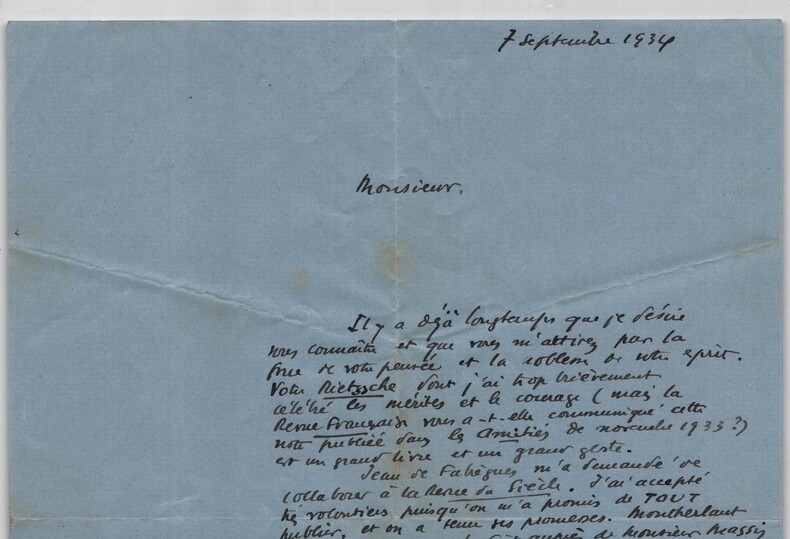 7 Septembre 1934
Monsieur,
Il y a déjà longtemps que je désire
vous connaître et que vous m'attirez par la
force de votre pensée et la noblesse de votre esprit.
Votre Nietzsche dont j'ai trop brièvement
célébré les mérites et le courage (mais la
Revue Française vous a-t-elle communiqué cette
note publiée dans les Amitiés de novembre 1933 ?)
est un grand livre et un grand geste.
Jean de Fabrègues m'a demandé de
collaborer à la Revue du Siècle. J'ai accepté
très volontiers puisqu'on m'a promis de TOUT
publier, et on a tenu ses promesses. Montherlant
auprès de Monsieur Massis